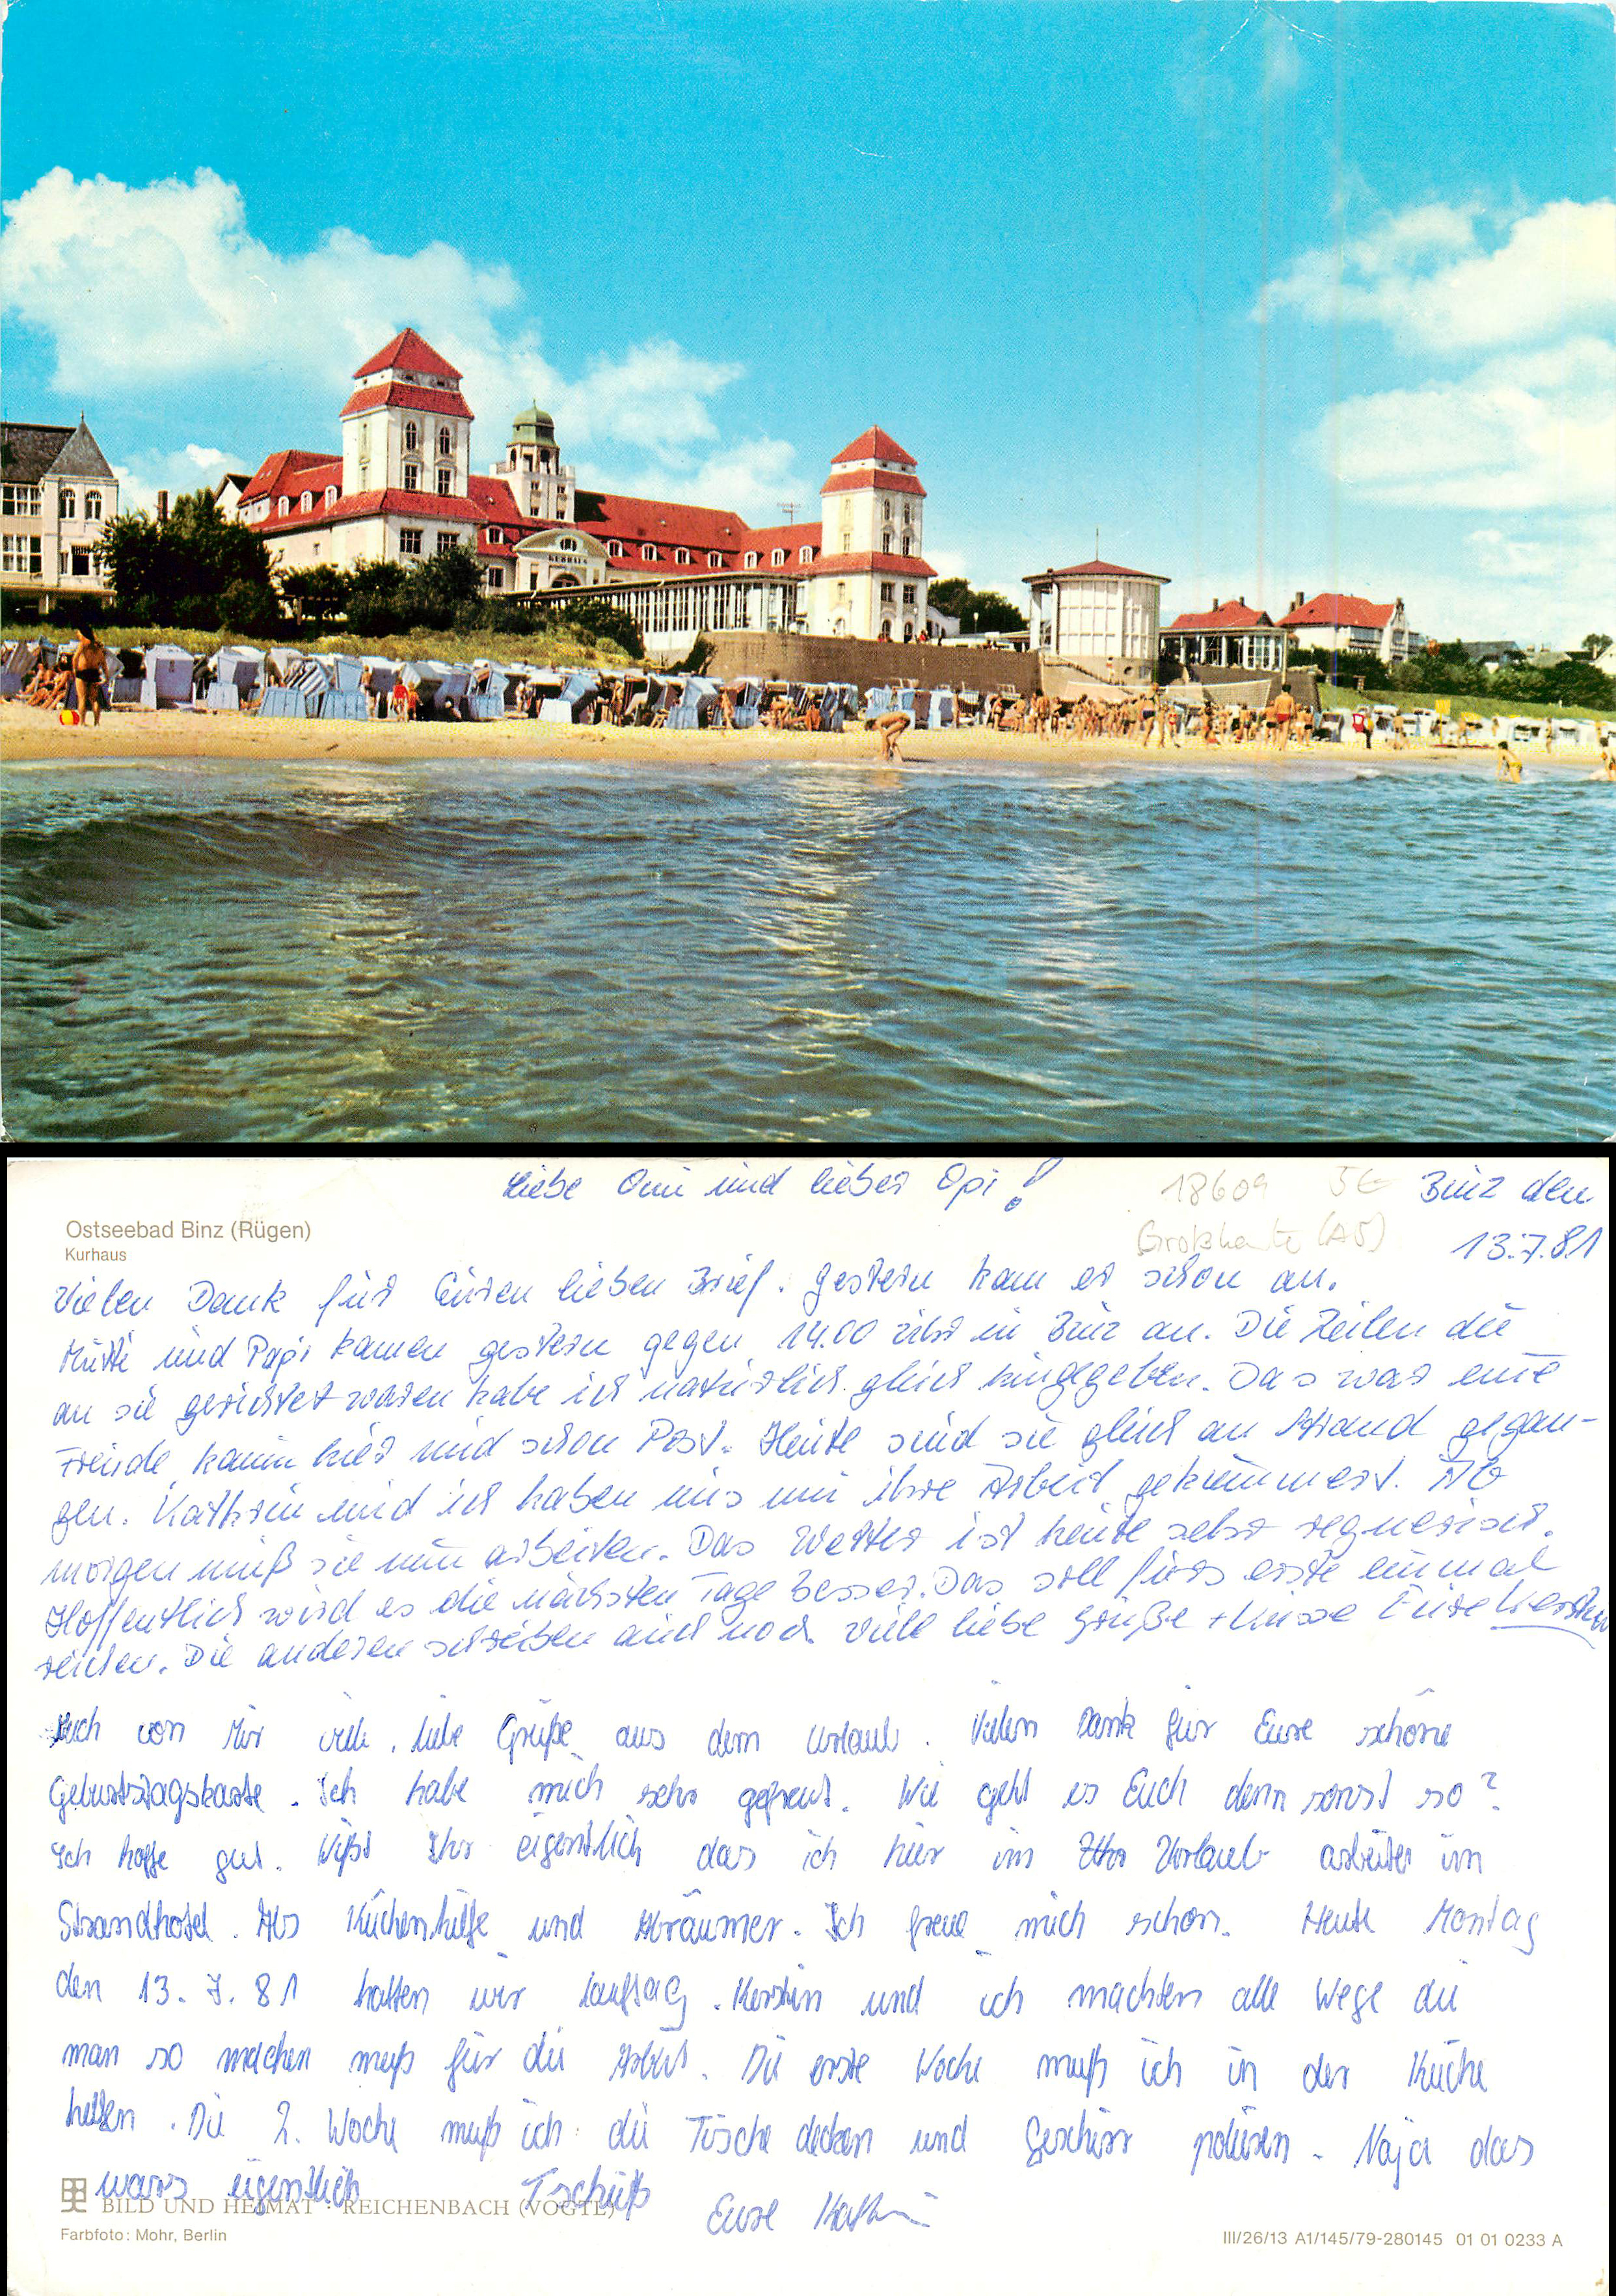 KURHAUS
Liebe Omi und lieber Opi!
18609 5€
Binz den
Großkarte (A5)
13.7.81
Ostseebad Binz (Rügen)
Kurhaus
Vielen Dank für Euren lieben Brief. Gestern kam er schon an.
Mutti und Papi kamen gestern gegen 14.00 Uhr in Binz an. Die Zeilen die
an sie gerichtet waren habe ich natürlich gleich hingegeben. Das war eine
Freude, kaum hier und schon Post. Heute sind sie gleich an Strand gegan-
gen. Kathrin und ich haben uns um ihre Arbeit gekümmert. Ab
morgen muß sie nun arbeiten. Das Wetter ist heute sehr regnerisch.
Hoffentlich wird es die nächsten Tage besser. Das soll fürs erste einmal
reichen. Die anderen schreiben auch noch. Viele liebe Grüße + Küsse Eure Kerstin
Auch von Mir viele, liebe Grüße aus dem Urlaub. Vielen Dank für Eure schöne
Geburtstagskarte. Ich habe mich sehr gefreut. Wie geht es Euch denn sonst so?
Ich hoffe gut. Wißt Ihr eigentlich das ich hier im Urlaub arbeite im
Strandhotel. Als Küchenhilfe und Abräumer. Ich freue mich schon. Heute Montag
den 13.7.81 hatten wir Lauftag. Kerstin und ich machten alle Wege die
man so machen muß für die Arbeit. Die erste Woche muß ich in der Küche
helfen. Die 2. Woche muß ich die Tische decken und Geschirr polieren. Naja das
wars eigentlich Tschüß Eure Kathrin
BILD UND HEIMAT · REICHENBACH (VOGTL)
Farbfoto: Mohr, Berlin
III/26/13 A1/145/79-280145 01 01 0233 A